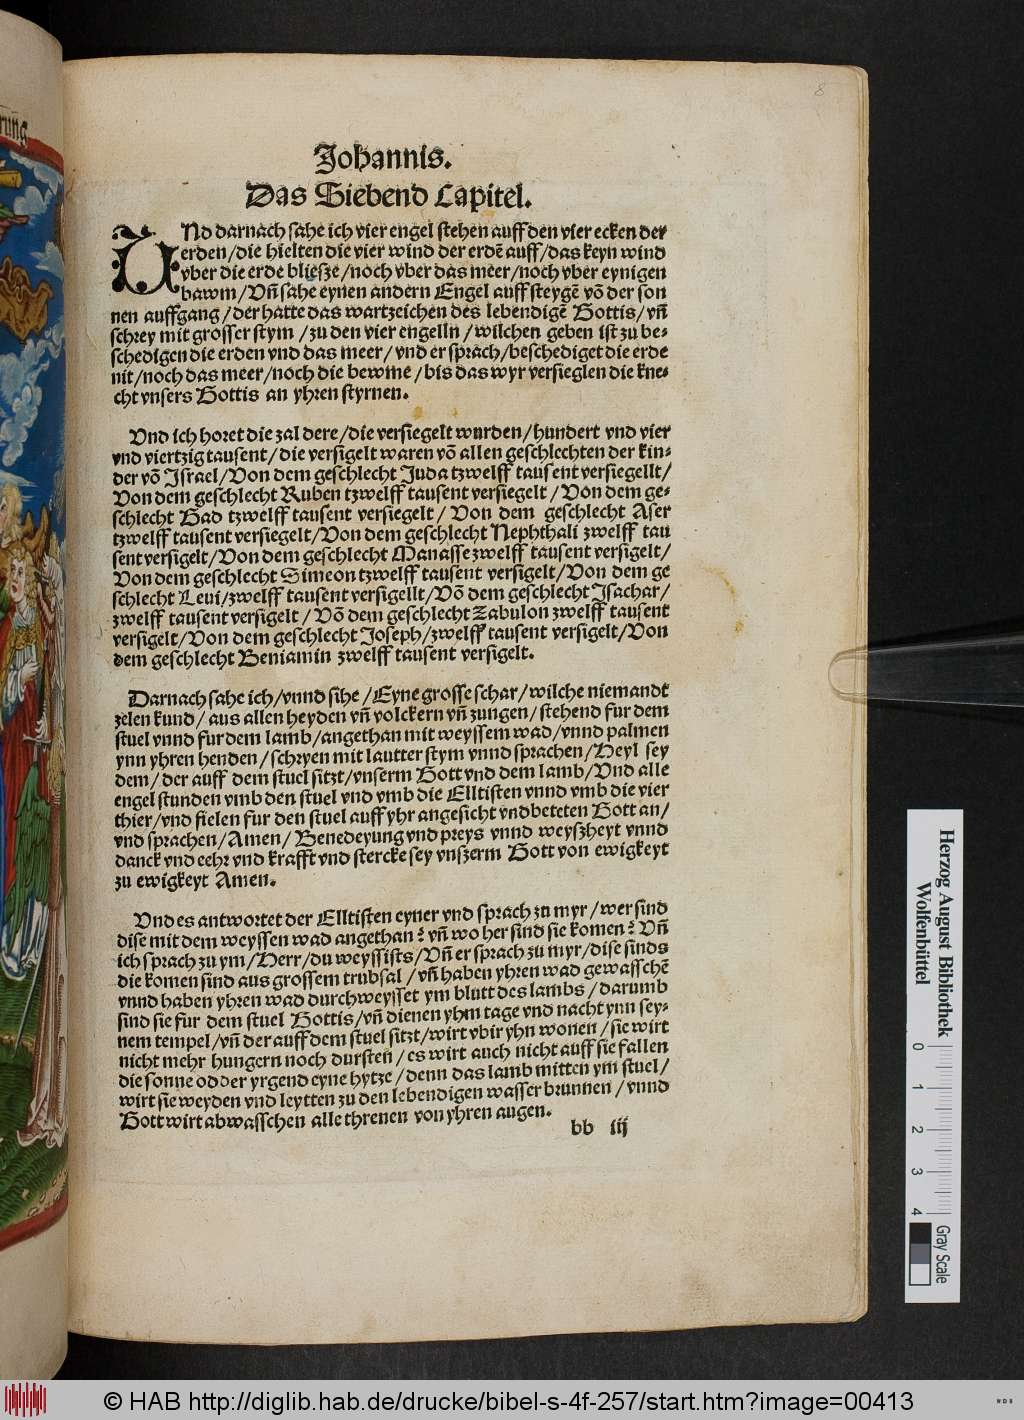 rung
8
Johannis.
Das Siebend Capitel.
UNd darnach sahe ich vier engel stehen auff den vier ecken der
erden/die hielten die vier wind der erdē auff/das keyn wind
vber die erde bliesze/noch vber das meer/noch vber eynigen
bawm/Vn̄ sahe eynen andern Engel auff steygē vō der son
nen auffgang/der hatte das wartzeichen des lebendigē Gottis/vn̄
schrey mit grosser stym/zu den vier engelln/wilchen geben ist zu be⸗
schedigen die erden vnd das meer/vnd er sprach/beschediget die erde
nit/noch das meer/noch die bewme/bis das wyr versieglen die kne⸗
cht vnsers Gottis an yhren styrnen.
Vnd ich horet die zal dere/die versiegelt wurden/hundert vnd vier
vnd viertzig tausent/die versigelt waren vō allen geschlechten der kin⸗
der vō Israel/Von dem geschlecht Juda tzwelff tausent versiegellt/
Von dem geschlecht Ruben tzwelff tausent versiegelt/Von dem ge⸗
schlecht Gad tzwelff tausent versiegelt/Von dem geschlecht Aser
tzwelff tausent versiegelt/Von dem geschlecht Nephthali zwelff tau
sent versigelt/Von dem geschlecht Manasse zwelff tausent versigelt/
Von dem geschlecht Simeon tzwelff tausent versigelt/Von dem ge
schlecht Leui/zwelff tausent versigellt/Vō dem geschlecht Isachar/
zwelff tausent versigelt/Vō dem geschlecht Zabulon zwelff tausent
versigelt/Von dem geschlecht Joseph/zwelff tausent versigelt/Von
dem geschlecht Beniamin zwelff tausent versigelt.
Darnach sahe ich/vnnd sihe/Eyne grosse schar/wilche niemandt
zelen kund/aus allen heyden vn̄ volckern vn̄ zungen/stehend fur dem
stuel vnnd fur dem lamb/angethan mit weyssem wad/vnnd palmen
ynn yhren henden/schryen mit lautter stym vnnd sprachen/Heyl sey
dem/der auff dem stuel sitzt/vnserm Gott vnd dem lamb/Vnd alle
engel stunden vmb den stuel vnd vmb die Elltisten vnnd vmb die vier
thier/vnd fielen fur den stuel auff yhr angesicht vnd beteten Gott an/
vnd sprachen/Amen/Benedeyung vnd preys vnnd weyszheyt vnnd
danck vnd eehr vnd krafft vnd stercke sey vnszerm Gott von ewigkeyt
zu ewigkeyt Amen.
Vnd es antwortet der Elltisten eyner vnd sprach zu myr/wer sind
dise mit dem weyssen wad angethan? vn̄ wo her sind sie komen? Vn̄
ich sprach zu ym/Herr/du weyssists/Vn̄ er sprach zu myr/dise sinds
die komen sind aus grossem trubsal/vn̄ haben yhren wad gewasschē
vnnd haben yhren wad durchweysset ym blutt des lambs/darumb
sind sie fur dem stuel Gottis/vn̄ dienen yhm tage vnd nacht ynn sey⸗
nem tempel/vn̄ der auff dem stuel sitzt/wirt vbir yhn wonen/sie wirt
nicht mehr hungern noch dursten/es wirt auch nicht auff sie fallen
die sonne odder yrgend eyne hytze/denn das lamb mitten ym stuel/
wirt sie weyden vnd leytten zu den lebendigen wasser brunnen/vnnd
Gott wirt abwasschen alle threnen von yhren augen.
bb iij
Herzog August Bibliothek
Wolfenbüttel
0 1 2 3 4
Gray Scale
© HAB http://diglib.hab.de/drucke/bibel-s-4f-257/start.htm?image=00413